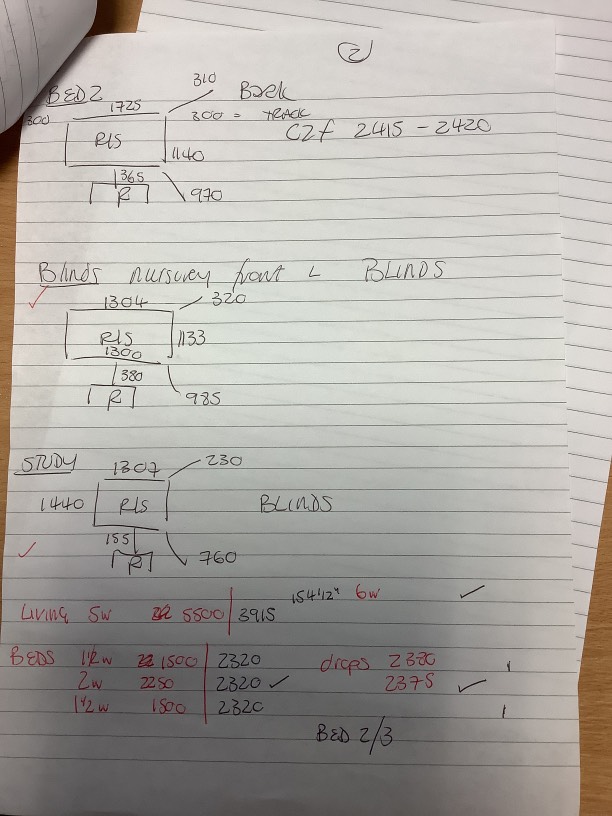 2
310
BED 2 Back
1725
300 300 = TRACK
C2f 2415 - 2420
RIS
1140
365
R 970
Blinds nursury front L BLINDS
1304 320
RIS 1133
1300
380
R 985
STUDY 1307 230
1440 RIS BLINDS
155
R 760
154 1/2" 6w
Living 5w 5500 3915
BEDS 1 1/2w 1500 2320 drops 2330
2w 2250 2320 ✓ 2375
1 1/2w 1500 2320
BED 2/3